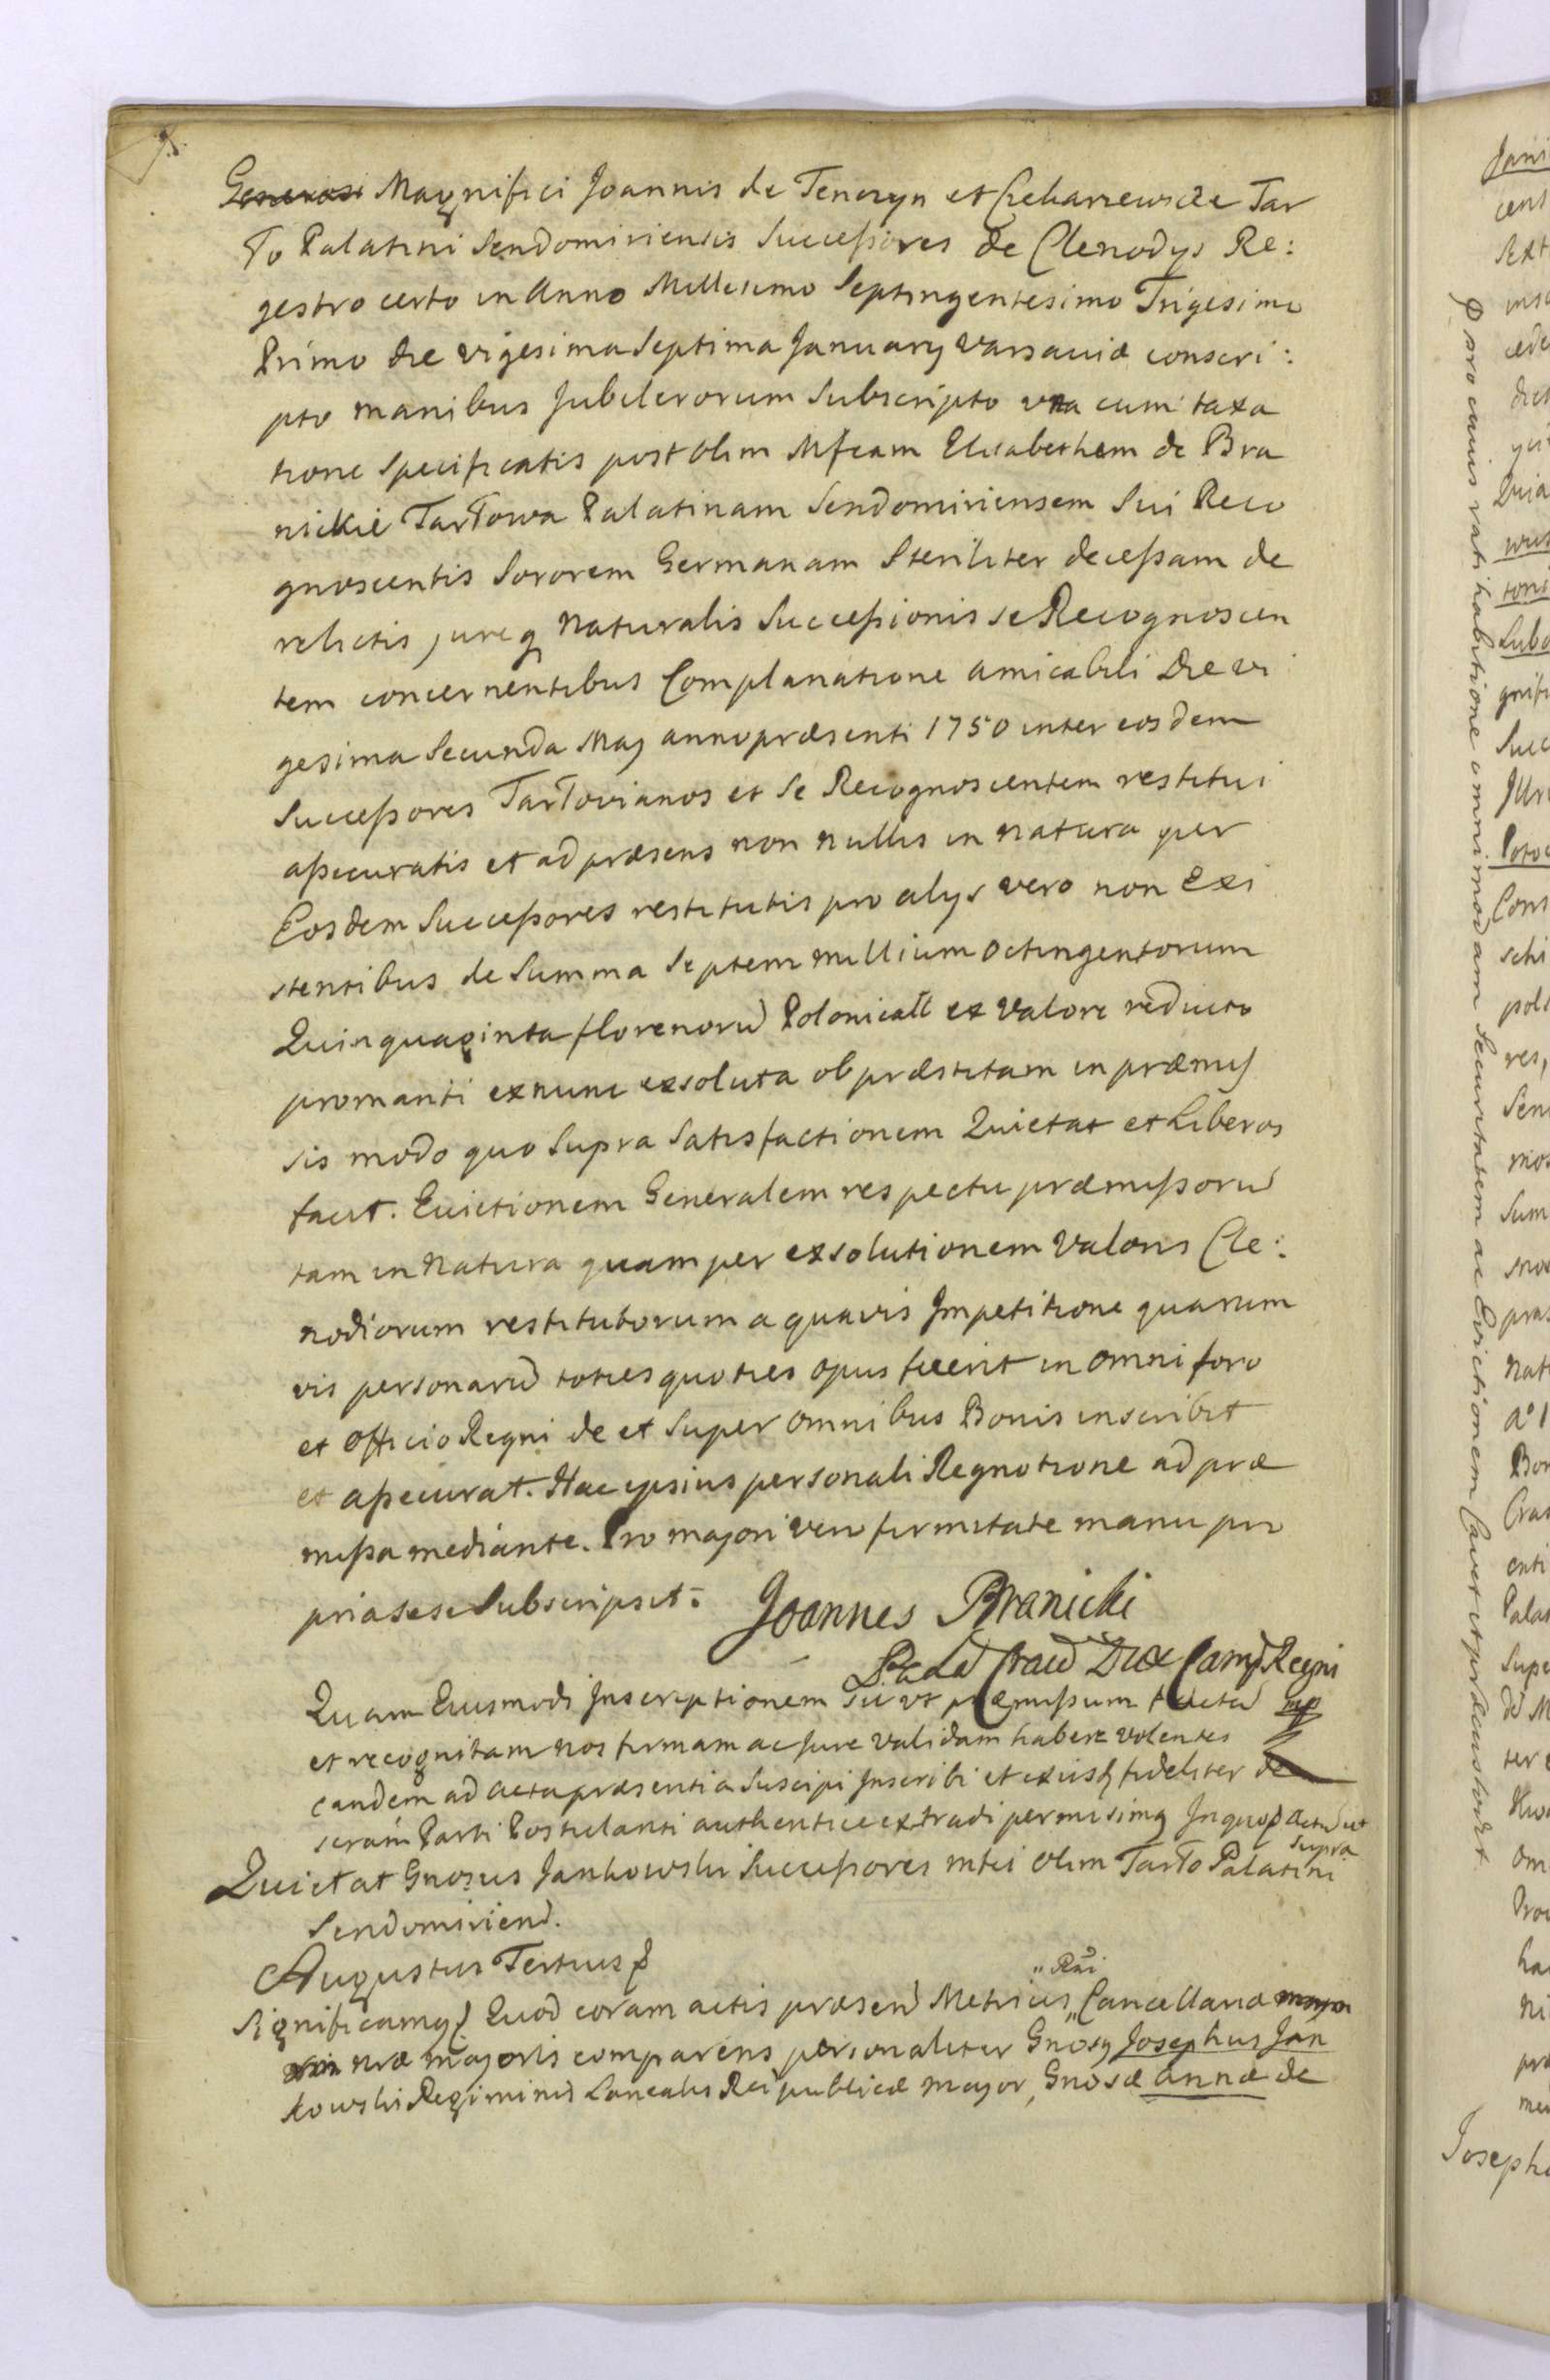 Generosi Magnifici Joannis de Tenczyn et Czekarzewice Tar
ło Palatini Sendomiriensis Successores de Clenodys Re:
gestro certo in Anno Millesimo Septingentesimo Trigesimo
Primo die vigesima Septima January Varsaviæ conscri:
pto manibus Jubilerorum Subscripto una cum taxa
tione Specificatis post olim Mfcam Elisabetham de Bra
nickie Tarłowa Palatinam Sendomiriensem Sui Reco
gnoscentis Sororem Germanam Steriliter decessam de
relictis, jureq naturalis Successionis se Recognoscen
tem concernentibus Complanatione amicabili Die vi
gesima Secunda May anno præsenti 1750 inter eosdem
Successores Tarłovianos et Se Recognoscentem restitui
assecuratis et ad præsens non nullis in natura per
Eosdem Successores restitutis pro alys vero non Exi
stentibus de Summa Septem millium Octingentorum
Quinquaginta florenorum Polonicall ex Valore reducto
promanti exnunc exsoluta ob præstitam in præmis
sis modo quo Supra Satisfactionem Quietat et Liberos
facit. Evictionem Generalem respectu præmissorum
tam in Natura quam per exsolutionem Valoris Cle:
nodiorum restitutorum a quavis Impetitione quarum
vis personarum toties quoties opus fuerit in omni foro
et officio Regni de et Super omnibus Bonis inscribit
et assecurat. Hac ipsius personali Regnotione ad præ
missa mediante. Pro majori vero firmitate manu pro
pria sese Subscripsit.
Joannes Branicki
Dux Camp Regni
Quam Eiusmodi Inscriptionem Sic ut præmissum factam mp
et recognitam nos firmam ac Jure Validam habere volentes
eandem ad acta præsentia Suscipi Inscribi et exiisq fideliter de
seram Parti Postulanti authentice extradi permisimq In quoq actum ut
Supra
Quietat Gnosus Jankowski Successores mfci olim Tarło Palatini
Sendomirien.
Augustus Tertius
"Rni
Significamq Quod coram actis præsen Metrices "Cancellariæ
nræ majoris comparens personaliter Gnosq Josephus Jan
kowski Regiminis Lanealis Reipublicæ major, Gnosæ Annæ de